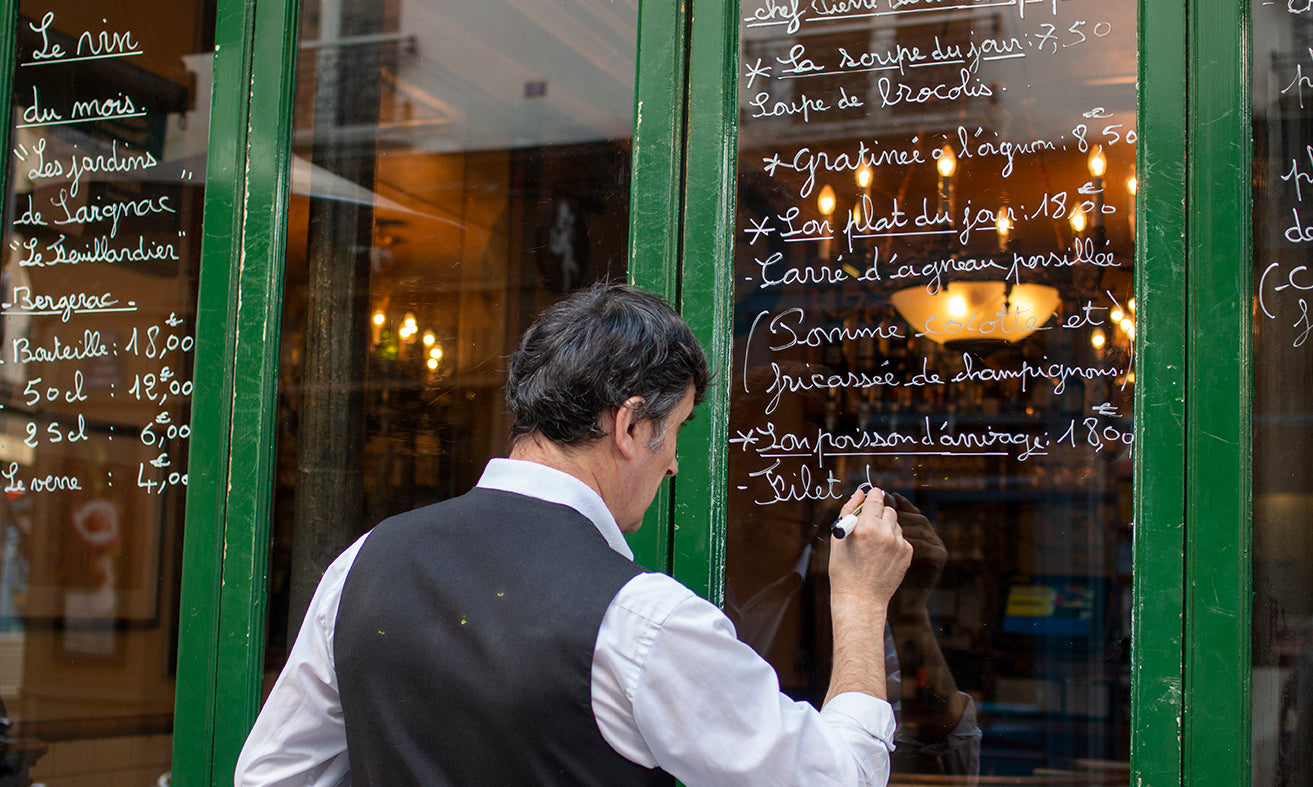 Le vin
du mois.
"Les jardins
de Saignac"
"Le Feuillardier"
-Bergerac-
Bouteille: 18,00€
50cl : 12,00€
25cl : 6,00€
Le verre : 4,00€
chef Pierre
* La soupe du jour: 7,50
Soupe de brocolis.
* Gratinée à l'oignon: 8,50€
* Son plat du jour: 18,00€
- Carré d'agneau persillée
(Pomme cocotte et
fricassée de champignons.
* Son poisson d'arrivage: 18,00€
- Filet